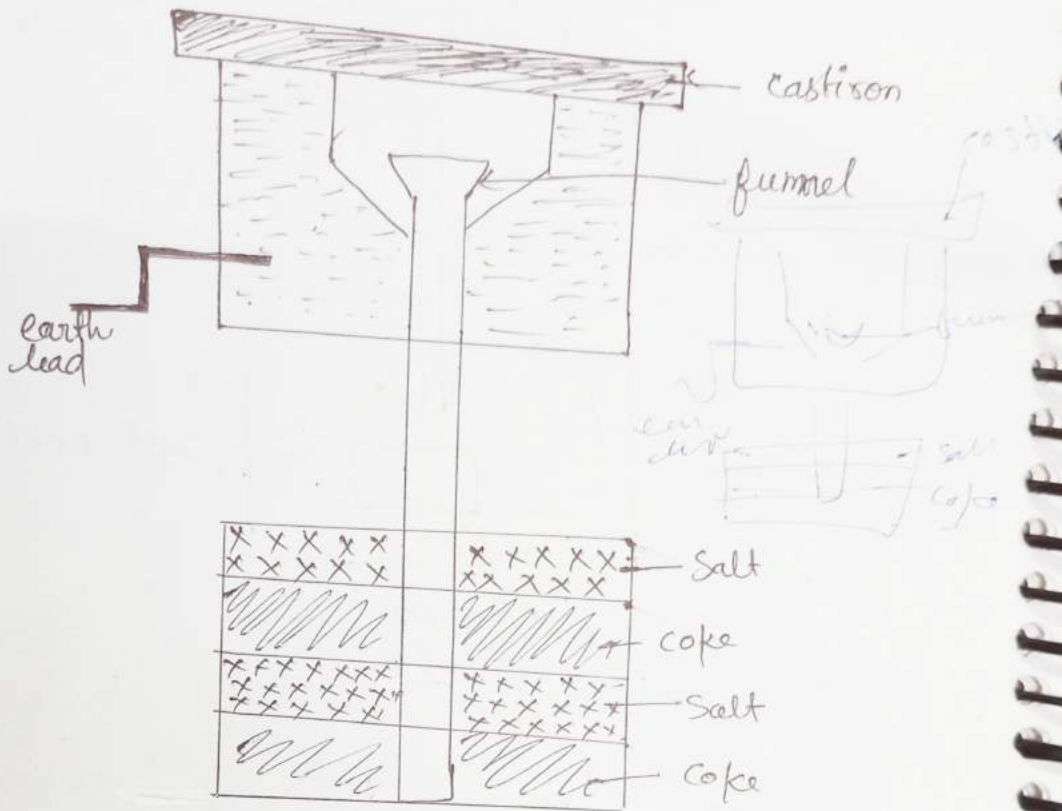 castiron
funnel
earth
lead
Salt
coke
Salt
coke
salt